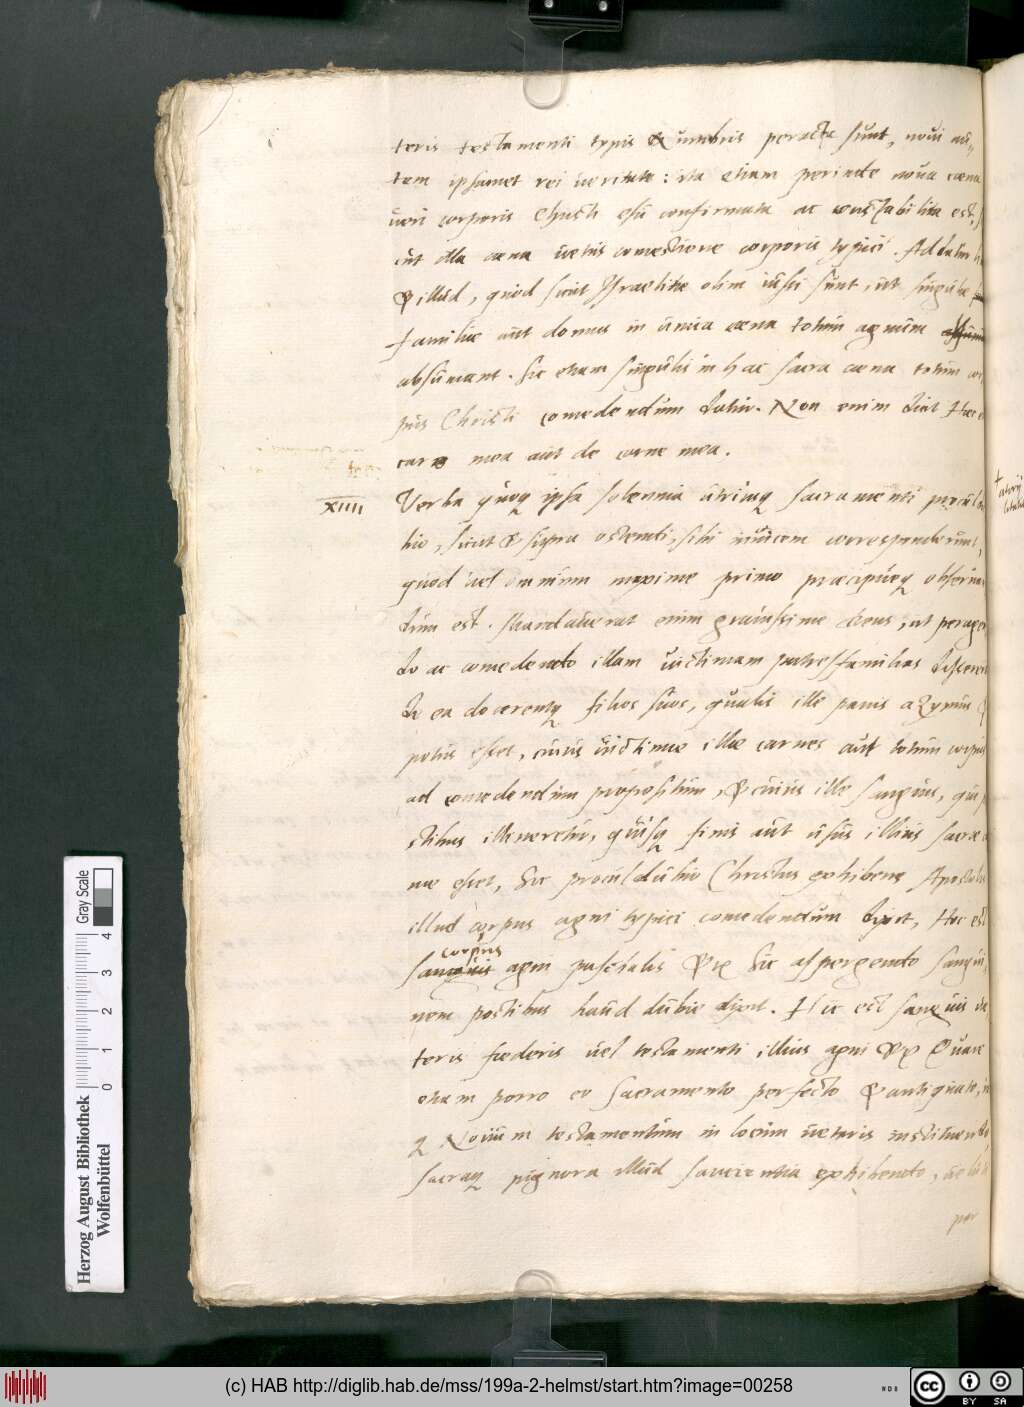 teris testamenti typis & umbris peracta sunt, novi au,
tem ipsiusmet rei veritate: ita etiam perinde nova cœna
veri corporis Christi esu confirmata ac constabilita est,
ut illa cœna vetus comestione corporis typici. Addatur
& illud, quod sicut Israelitæ olim iussi sunt, ut singulæ
familiæ aut domus in unica cœna totum agnum
absumant. Sic etiam singuli in hac sacra cœna totum cor
pus Christi comedendum datur. Non enim dicit Hæc e
caro mea aut de carne mea.
XIIII
Verba quoq ipsa solennia utriusq sacramenti procul du
bio, sicut & supra ostendi, sibi invicem corresponderunt,
quod vel omnium maxime primo præcipueq observan
dum est. Mandaverat enim gravissime Deus, ut peragen
do ac comedendo illam victimam patresfamilias dissereren
de ea docerentq filios suos, qualis ille panis azymus
potus esset, cuius victimæ illæ carnes aut totum corpus
ad comedendum propositum, & cuius ille sanguis, qui p
stibus illineretur, quisq finis aut usus illius sacræ
næ esset, Sic procul dubio Christus exhibens Apostolis
illud corpus agni typici comedendum dixit, Hoc est
corpus
sanguis agni paschalis &c Sic aspergendo sangui,
nem postibus haud dubie dixit. Hic est sanguis ve
teris fœderis vel testamenti illius agni &c Quare
etiam porro eo sacramento perfecto & antiquato, i
q Novum testamentum in locum veteris instituendo
sacraq pignora illud sancientia exhibendo, ve
per
Herzog August Bibliothek
Wolfenbüttel
Gray Scale
0 1 2 3 4
(c) HAB http://diglib.hab.de/mss/199a-2-helmst/start.htm?image=00258
cc BY SA